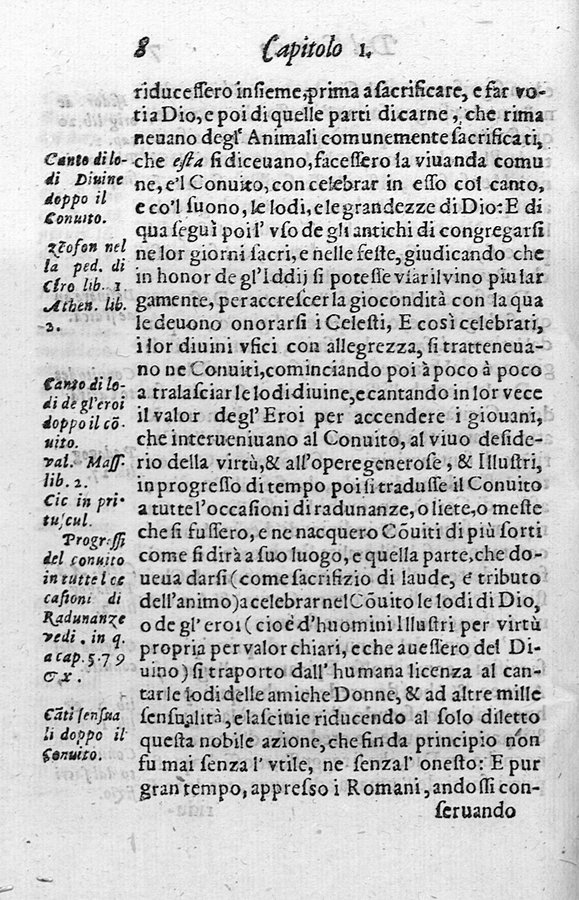 8 Capitolo 1.
riducessero insieme, prima a sacrificare, e far vo-
ti a Dio, e poi di quelle parti di carne, che rima
neuano degl' Animali comunemente sacrificati,
che esta si diceuano, facessero la viuanda comu
ne, e'l Conuito, con celebrar in esso col canto,
e co'l suono, le lodi, e le grandezze di Dio: E di
qua seguì poi l' vso de gli antichi di congregarsi
ne lor giorni sacri, e nelle feste, giudicando che
in honor de gl' Iddij si potesse vsar il vino piu lar
gamente, per accrescer la giocondità con la qua
le deuono onorarsi i Celesti, E così celebrati,
i lor diuini vfici con allegrezza, si tratteneua-
no ne Conuiti, cominciando poi à poco à poco
a tralasciar le lodi diuine, e cantando in lor vece
il valor degl' Eroi per accendere i giouani,
che interueniuano al Conuito, al viuo deside-
rio della virtù, & all'opere generose, & Illustri,
in progresso di tempo poi si tradusse il Conuito
a tutte l'occasioni di radunanze, o liete, o meste
che si fussero, e ne nacquero Cõuiti di più sorti
come si dirà a suo luogo, e quella parte, che do-
ueua darsi (come sacrifizio di laude, e tributo
dell'animo) a celebrar nel Cõuito le lodi di Dio,
o de gl' eroi (cioè d'huomini Illustri per virtù
propria per valor chiari, e che auessero del Di-
uino) si traporto dall' humana licenza al can-
tar le lodi delle amiche Donne, & ad altre mille
sensualità, e lasciuie riducendo al solo diletto
questa nobile azione, che fin da principio non
fu mai senza l' vtile, ne senza l' onesto: E pur
gran tempo, appresso i Romani, andossi con-
seruando
Canto di lo-
di Diuine
doppo il
Conuito.
zẽofon nel
la ped. di
Ciro lib. 1.
Athen. lib.
2.
Canto di lo-
di de gl'eroi
doppo il cõ-
uito.
val. Mass.
lib. 2.
Cic in pri-
tuscul.
Progressi
del conuito
in tutte l'oc
casioni di
Radunanze
vedi . in q.
a cap. 5. 7 9
& x.
Cãti sensua
li doppo il
Conuito.